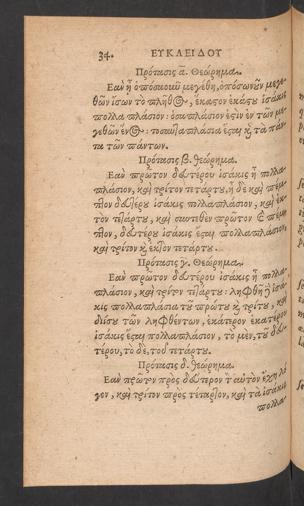 34. ΕΥΚΛΕΙΔΟΥ
Πρότασις α. Θεώρημα.
Εαν ᾖ ὁποσαοιοῦν μεγέθη, ὁποσωνοῦν μεγε-
θῶν ἴσων τὸ πλῆθος, ἕκαστον ἑκάστου ἰσάκις
πολλαπλάσιον: ὁσαπλάσιον ἐστὶν ἓν τῶν με-
γεθῶν ἑνὸς: τοσαυταπλάσια ἔσται καὶ τὰ πάν-
τα τῶν πάντων.
Πρότασις β. Θεώρημα.
Εαν πρῶτον δευτέρου ἰσάκις ᾖ πολλα-
πλάσιον, καὶ τρίτον τετάρτου, ᾖ δὲ καὶ πέμ-
πτον δευτέρου ἰσάκις πολλαπλάσιον, καὶ ἕκ-
τον τετάρτου, καὶ συντεθὲν πρῶτον καὶ πέμ-
πτον, δευτέρου ἰσάκις ἔσται πολλαπλάσιον,
καὶ τρίτον καὶ ἕκτον τετάρτου.
Πρότασις γ. Θεώρημα.
Εαν πρῶτον δευτέρου ἰσάκις ᾖ πολλα-
πλάσιον, καὶ τρίτον τετάρτου: ληφθῇ δὲ ἰσά-
κις πολλαπλάσια τοῦ πρώτου καὶ τρίτου, καὶ
διΐσου τῶν ληφθέντων, ἑκάτερον ἑκατέρου
ἰσάκις ἔσται πολλαπλάσιον, τὸ μὲν, τοῦ δευ-
τέρου, τὸ δὲ, τοῦ τετάρτου.
Πρότασις δ. Θεώρημα.
Εαν πρῶτον πρὸς δεύτερον τὸν αὐτὸν ἔχῃ λό-
γον, καὶ τρίτον πρὸς τέταρτον, καὶ τὰ ἰσάκις
πολλα-